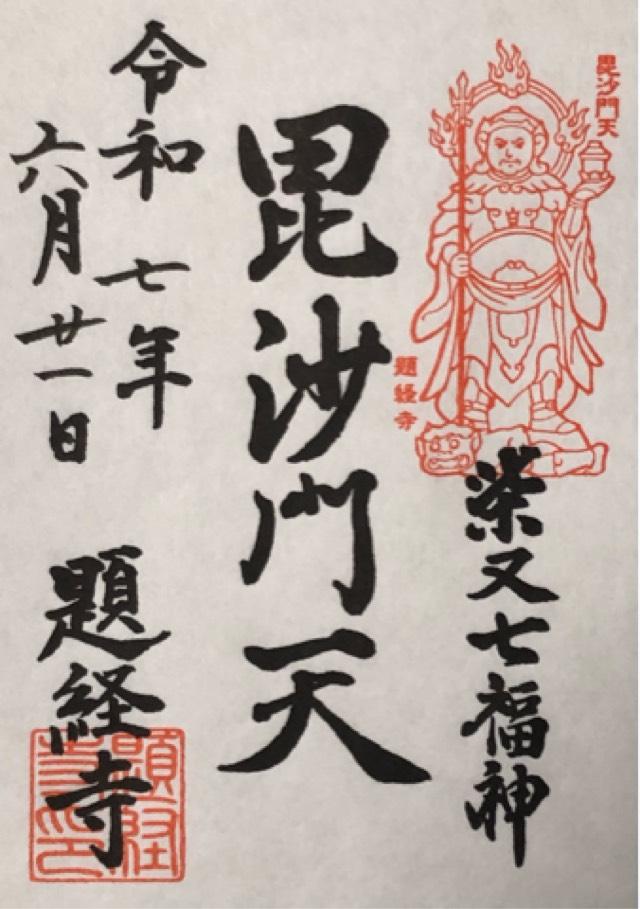 毘沙門天
題経寺
柴又七福神
毘沙門天
令和七年
六月廿一日
題経寺